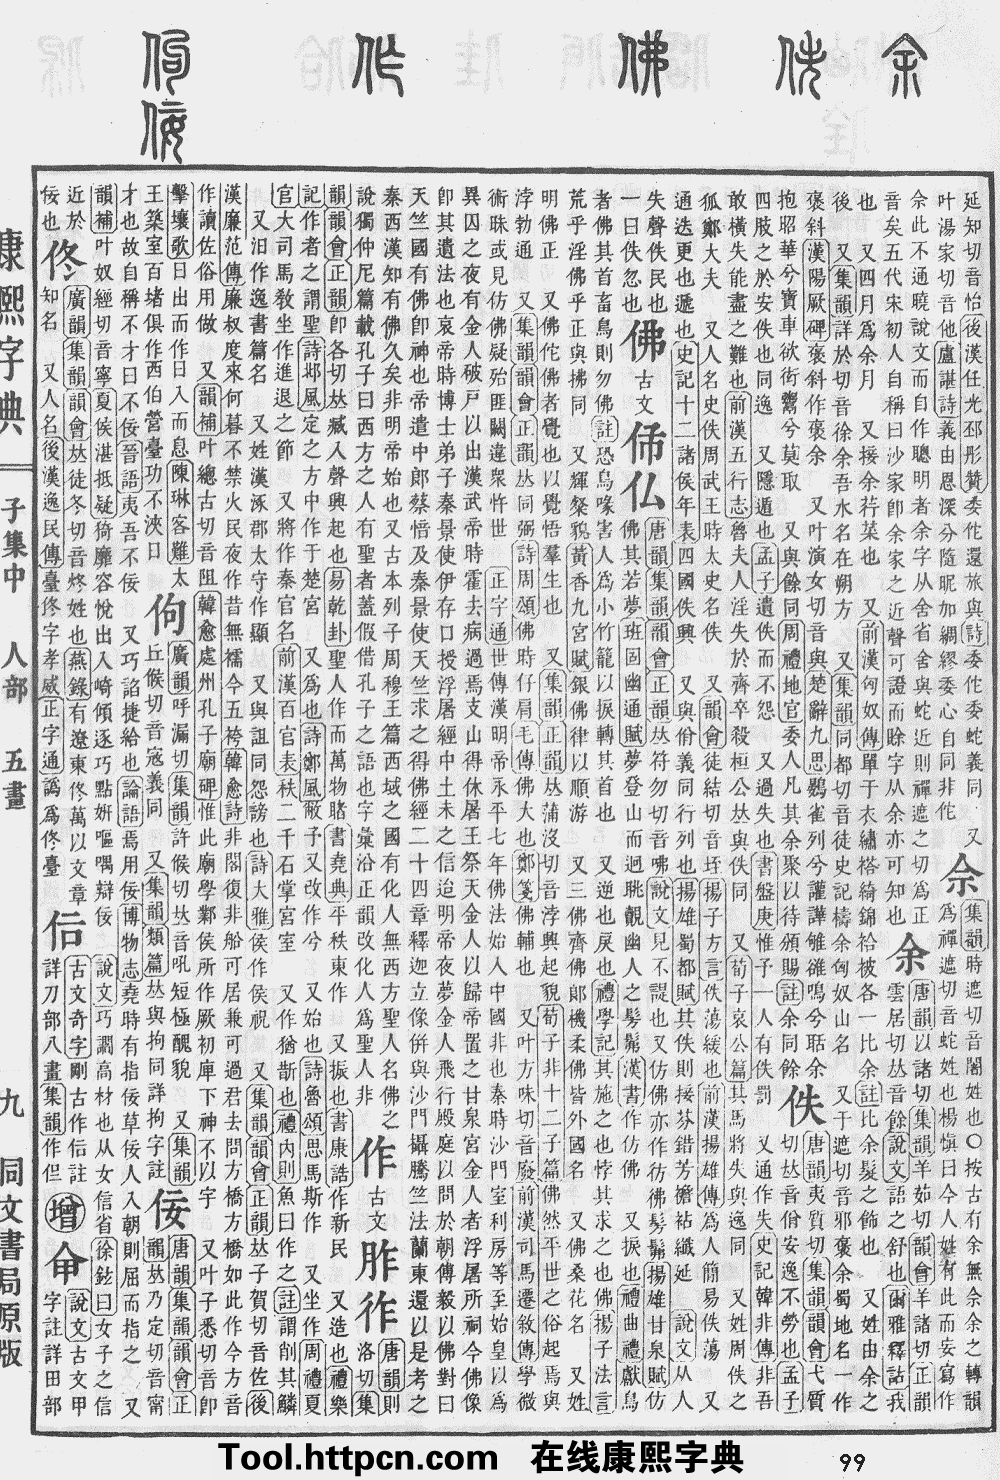 余
佚
佛
作
佝
佞
延知切音怡後漢任光邳彤贊委佗還旅與詩委佗委蛇義同 又
叶湯家切音他盧諶詩義由恩深分隨昵加綢繆委心自同非佗
佘
集韻時遮切音闍姓也○按古有余無佘余之轉韻
爲禪遮切音蛇姓也楊愼曰今人姓有此而妄寫作
佘此不通曉說文而自作聰明者余字从舍省舍與蛇近則禪遮之切爲正
音矣五代宋初人自稱曰沙家卽余家之近聲可證而賖字从余亦可知也
余
唐韻以諸切集韻韻會羊諸切正韻
雲居切𠀤音餘說文語之舒也爾雅釋詁我
也 又四月爲余月 又接余荇菜也 又前漢匈奴傳單于衣繡袷綺錦袷被各一比余註比余髮之飾也 又姓由余之
後 又集韻詳於切音徐余吾水名在朔方 又集韻同都切音徒史記檮余匈奴山名 又于遮切音邪褒余蜀地名一作
褒斜漢陽厥碑褒斜作褒余 又叶演女切音與楚辭九思鵾雀列兮讙譁雊雒鳴兮聒余
抱昭華兮寶車欲衒鬻兮莫取 又與餘同周禮地官委人凡其余聚以待頒賜註余同餘
佚
唐韻夷質切集韻韻會弋質
切𠀤音佾安逸不勞也孟子
四肢之於安佚也同逸 又隱遁也孟子遺佚而不怨 又過失也書盤庚惟予一人有佚罰 又通作失史記韓非傳非吾
敢橫失能盡之難也前漢五行志魯夫人淫失於齊卒殺桓公𠀤與佚同 又荀子哀公篇其馬將失與逸同 又姓周佚之
狐鄭大夫 又人名史佚周武王時太史名佚 又韻會徒結切音垤揚子方言佚蕩緩也前漢揚雄傳爲人簡易佚蕩 又
通迭更也遞也史記十二諸侯年表四國佚興 又與佾義同行列也揚雄蜀都賦其佚則接芬錯芳襜袩纖延 說文从人
失聲佚民也
一曰佚忽也
佛
古文
仏
唐韻集韻韻會正韻𠀤符勿切音咈說文見不諟也 又仿佛亦作彷彿髣髴揚雄甘泉賦仿
佛其若夢班固幽通賦夢登山而迥眺覿幽人之髣髴漢書作仿佛 又捩也禮曲禮獻鳥
者佛其首畜鳥則勿佛註恐鳥喙害人爲小竹籠以捩轉其首也 又逆也戾也禮學記其施之也悖其求之也佛揚子法言
荒乎淫佛乎正與拂同 又輝祭貌黃香九宮賦銀佛律以順游 又三佛齊佛郎機柔佛皆外國名 又佛桑花名 又姓
明佛正 又佛佗佛者覺也以覺悟羣生也 又集韻正韻𠀤蒲沒切音浡興起貌荀子非十二子篇佛然平世之俗起焉與
浡勃通 又集韻韻會正韻𠀤同弼詩周頌佛時仔肩毛傳佛大也鄭箋佛輔也 又叶方味切音廢前漢司馬遷敘傳學微
術昧或見仿佛疑殆匪闕違衆忤世 正字通世傳漢明帝永平七年佛法始入中國非也秦時沙門室利房等至始皇以爲
異囚之夜有金人破戸以出漢武帝時霍去病過焉支山得休屠王祭天金人以歸帝置之甘泉宮金人者浮屠所祠今佛像
卽其遺法也哀帝時博士弟子秦景使伊存口授浮屠經中土未之信迨明帝夜夢金人飛行殿庭以問於朝傅毅以佛對曰
天竺國有佛卽神也帝遣中郎蔡愔及秦景使天竺求之得佛經二十四章釋迦立像倂與沙門攝騰竺法蘭東還以是考之
秦西漢知有佛久矣非明帝始也又古本列子周穆王篇西域之國有化人無西方聖人名佛之
說獨仲尼篇載孔子曰西方之人有聖者蓋假借孔子之語也字彙沿正韻改化人爲聖人非
作
古文
胙
唐韻則
洛切集
韻韻會正韻卽各切𠀤臧入聲興起也易乾卦聖人作而萬物睹書堯典平秩東作 又振也書康誥作新民 又造也禮樂
記作者之謂聖詩鄘風定之方中作于楚宮 又爲也詩鄭風敝予又改作兮 又始也詩魯頌思馬斯作 又坐作周禮夏
官大司馬敎坐作進退之節 又將作秦官名前漢百官表秩二千石掌宮室 又作猶斮也禮內則魚曰作之註謂削其鱗
又汨作逸書篇名 又姓漢涿郡太守作顯 又與詛同怨謗也詩大雅侯作侯祝 又集韻韻會正韻𠀤子賀切音佐後
漢廉范傳廉叔度來何暮不禁火民夜作昔無襦今五袴韓愈詩非閣復非船可居兼可過君去問方橋方橋如此作今方音
作讀佐俗用做 又韻補叶總古切音阻韓愈處州孔子廟碑惟此廟學鄴侯所作厥初庳下神不以宇 又叶子悉切音卽
擊壤歌日出而作日入而息陳琳客難太
王築室百堵俱作西伯營臺功不浹日
佝
廣韻呼漏切集韻許候切𠀤音吼短極醜貌 又集韻
丘候切音寇義同 又集韻類篇𠀤與拘同詳拘字註
佞
唐韻集韻韻會正
韻𠀤乃定切音甯
才也故自稱不才曰不佞晉語夷吾不佞 又巧諂捷給也論語焉用佞博物志堯時有指佞草佞人入朝則屈而指之 又
韻補叶奴經切音寧夏侯湛抵疑猗靡容悅出入崎傾逐巧點妍嘔喁辯佞 說文巧讇高材也从女信省徐鉉曰女子之信
近於
佞也
佟
廣韻集韻韻會𠀤徒冬切音炵姓也燕錄有遼東佟萬以文章
知名 又人名後漢逸民傳臺佟字孝威正字通譌爲佟臺
古文奇字剛古作 註
詳刀部八畫集韻作
增
說文古文甲
字註詳田部
康熙字典
子集中 人部 五畫
九
同文書局原版
Tool.httpcn.com 在线康熙字典
99